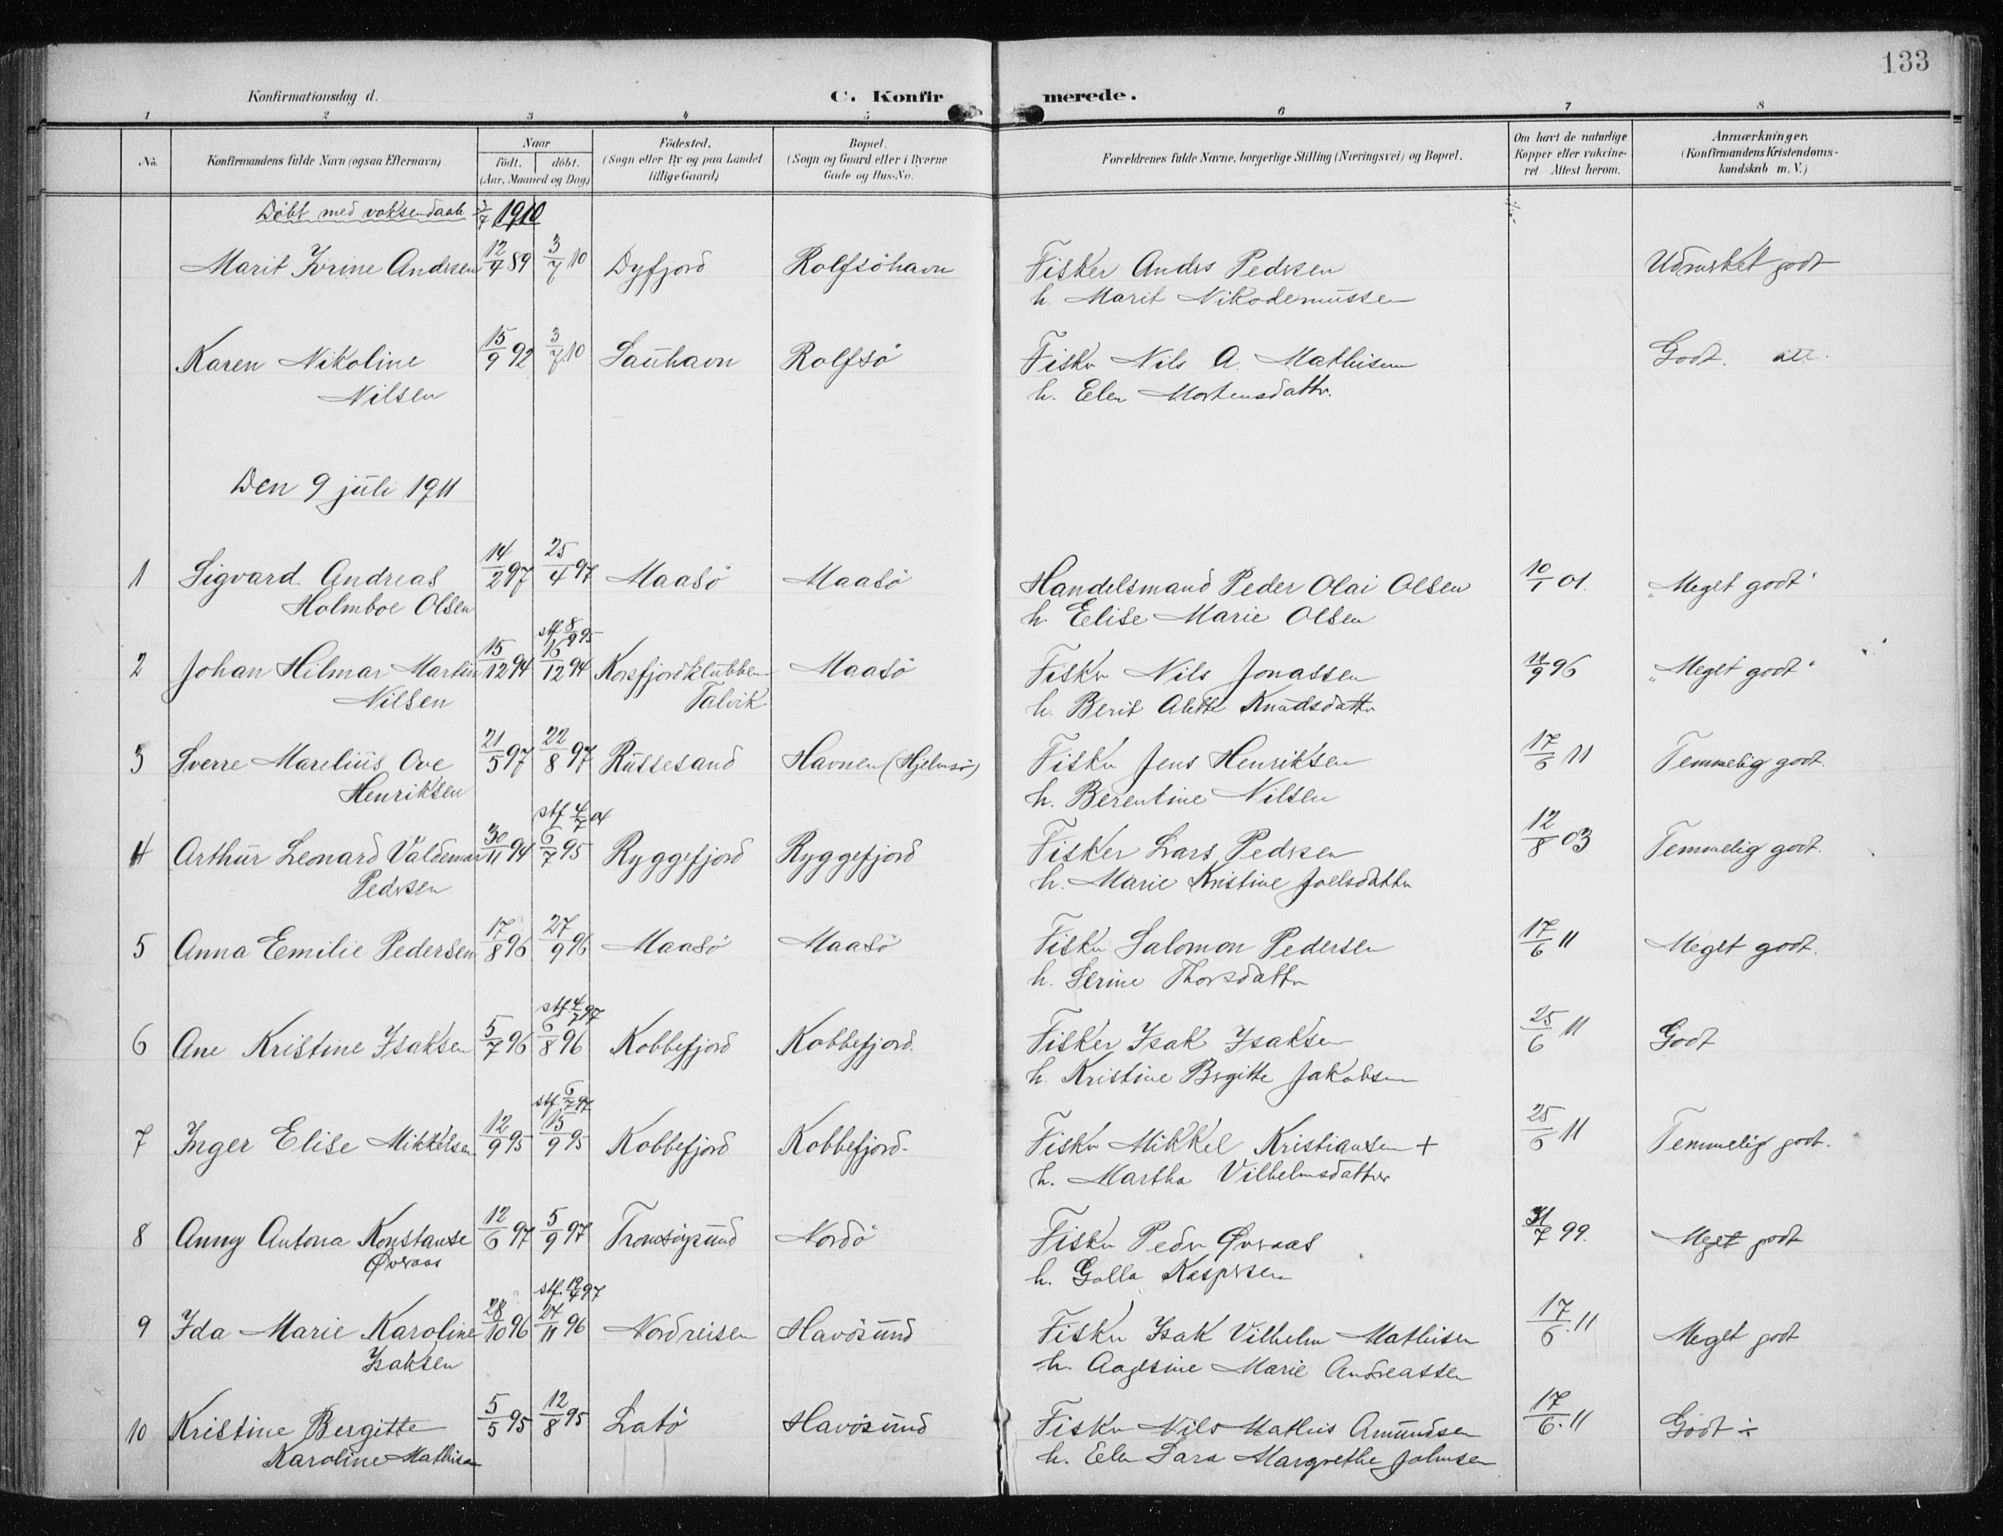 133
Konfirmationsdag d.
C. Konfirmerede.
1 2 3 4 5 6 7 8
No. Konfirmandens fulde Navn (ogsaa Efternavn) Naar födt. döbt. (Aar, Maaned og Dag) Födested. (Sogn eller By og paa Landet tillige Gaard) Bopæl. (Sogn og Gaard eller i Byerne Gade og Hus-No. Forældrenes fulde Navne, borgerlige Stilling (Næringsvei) og Bopæl. Om havt de naturlige Kopper eller vakcineret Attest herom. Anmærkninger. (Konfirmandens Kristendomskundskab m. V.)
Döbt med voksendaab 3/7 1910
Marit Irine Andrsen 12/4 89 3/7 10 Dyfjord Rolfsöhavn Fisker Andrs Pedrsen Udmrket godt
h. Marit Nikodemussen
Karen Nikoline 15/9 92 3/7 10 Sauhavn Rolfsö Fiskr Nils A. Mathisen Godt.
Nilsen h. Elen Mortensdattr.
Den 9 juli 1911
1 Sigvard Andreas 14/2 97 25/4 97 Maasö Maasö Handelsmand Peder Olai Olsen 10/1 01. "Meget godt"
Holmboe Olsen h. Elise Marie Olsen
stf 8/9 95
2 Johan Hilmar Martin 15/12 94 16/12 94 Korsfjordklubben Maasö Fiskr Nils Jonassen 11/9 96 "Meget godt"
Nilsen Talvik h. Berit Alette Knudsdattr
3 Sverre Marelius Ove 21/5 97 22/8 97 Russesand Havnen (Hjelmsö) Fiskr Jens Henriksen 17/6 11 Temmelig godt.
Henriksen h. Berentine Nilsen
stf 4/7 01
4 Arthur Leonard Valdemar 30/11 94 6/7 95 Ryggefjord Ryggefjord Fisker Lars Pedrsen 12/8 03 Temmelig godt.
Pedrsen h. Marie Kristine Joelsdattr
5 Anna Emilie Pedersen 17/8 96 27/9 96 Maasö Maasö Fiskr Salomon Pedersen 17/6 11 Meget godt.
h. Serine Thorsdattr
stf 4/7 97
6 Ane Kristine Isaksen 5/7 96 6/8 96 Kobbefjord Kobbefjord. Fisker Isak Isaksen 25/6 11 Godt
h. Kristine Brgitte Jakobsen
stf. 6/7 97
7 Inger Elise Mikkelsen 12/9 95 15/9 95 Kobbefjord Kobbefjord. Fiskr Mikkel Kristiansen + 25/6 11 Temmelig godt.
h. Martha Vilhelmsdatter
8 Anny Antona Konstanse 12/6 97 5/9 97 Tromsösund Nordö Fiskr Pedr Øvraas 31/7 99. Meget godt
Øvraas h. Golla Kasprsen
stf. 97
9 Ida Marie Karoline 28/10 96 27/11 96 Nordreisen Havösund Fiskr Isak Vilhelm Mathisen 17/6 11 Meget godt
Isaksen h. Aagesine Marie Andreassen
10 Kristine Bergitte 5/5 95 12/8 95 Latö Havösund Fiskr Nils Mathis Amundsen 17/6. 11 Godt ÷
Karoline Mathisen h. Elen Sara Margrethe Johnsen